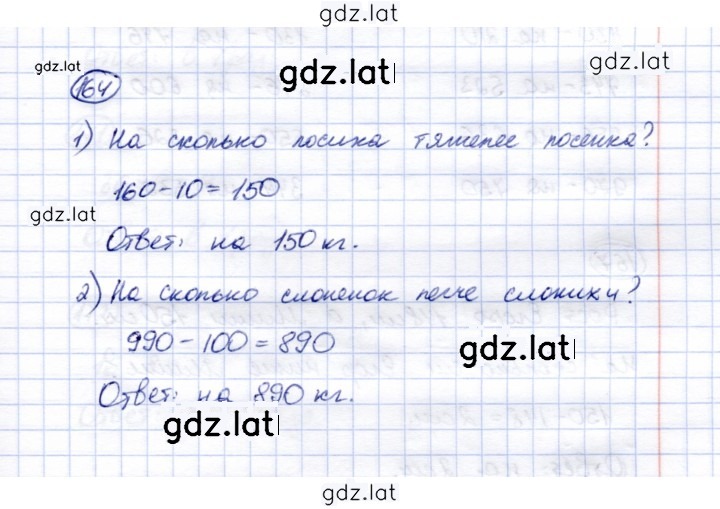 gdz.lat
gdz.lat
gdz.lat
gdz.lat
164
1) На сколько лосиха тяжелее лосенка?
160-10=150
gdz.lat
Ответ: на 150 кг.
2) На сколько слоненок легче слонихи?
990-100=890
gdz.lat
Ответ: на 890 кг.
gdz.lat
gdz.lat